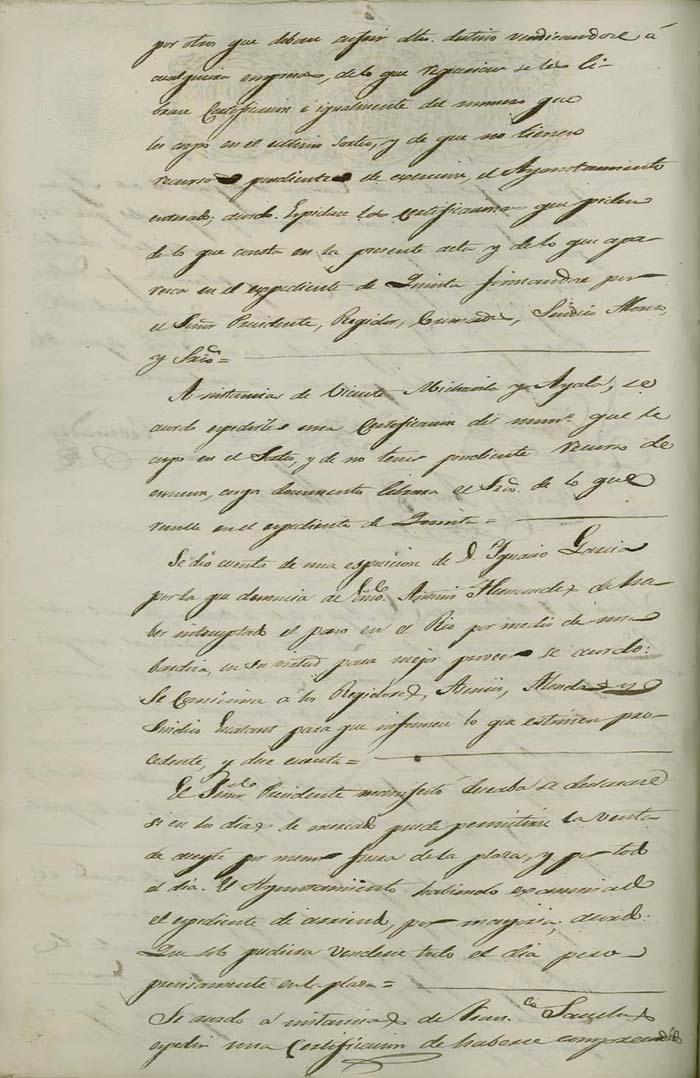 por otros que deban sufrir dho. destino vendiendose á
cualquiera empresa, de lo que requieran se les li-
brase Certificacion e igualmente del numero que
les cupo en el ultimo Sorteo, y de que no tienen
recursos pendientes de esencion, el Ayuntamiento
enterado; acordó. Espidase las Certificaciones que piden
de lo que consta en la presente acta y de lo que apa-
rezca en el espediente de Quinta firmandose por
el Señor Presidente, Regidor, Sindico
y Srio =
A instancia de Vicente Michavila y Ayala, se
acordó espedirle una Certificacion del numo. que le
cupo en el Sorteo, y de no tener pendiente recurso de
esencion, cuyo documento librara el Srio. de lo que
resulte en el espediente de Quinta =
Se dió cuenta de una esposicion de D. Ignacio Garcia
por la que denuncia de Antonio Hernandez de ha-
ber interceptado el paso en el Rio por medio de una
en su virtud para mejor proveer se acordó:
Se Comisiona a los Regidores, y
Sindico para que informen lo que estimen pro-
cedente, y dese cuenta =
El Señor Presidente manifestó deseaba se declarase
si en los dias de mercado puede permitirse la venta
de aceyte por menor fuera de la plaza, y por todo
el dia. El Ayuntamiento habiendo examinado
el espediente de arriendo, por mayoria, acordó:
Que solo pudiera venderse todo el dia pero
precisamente en la plaza =
Se acordó á instancia de Franco. Sanchez
espedir una Certificacion de haberse comprendido